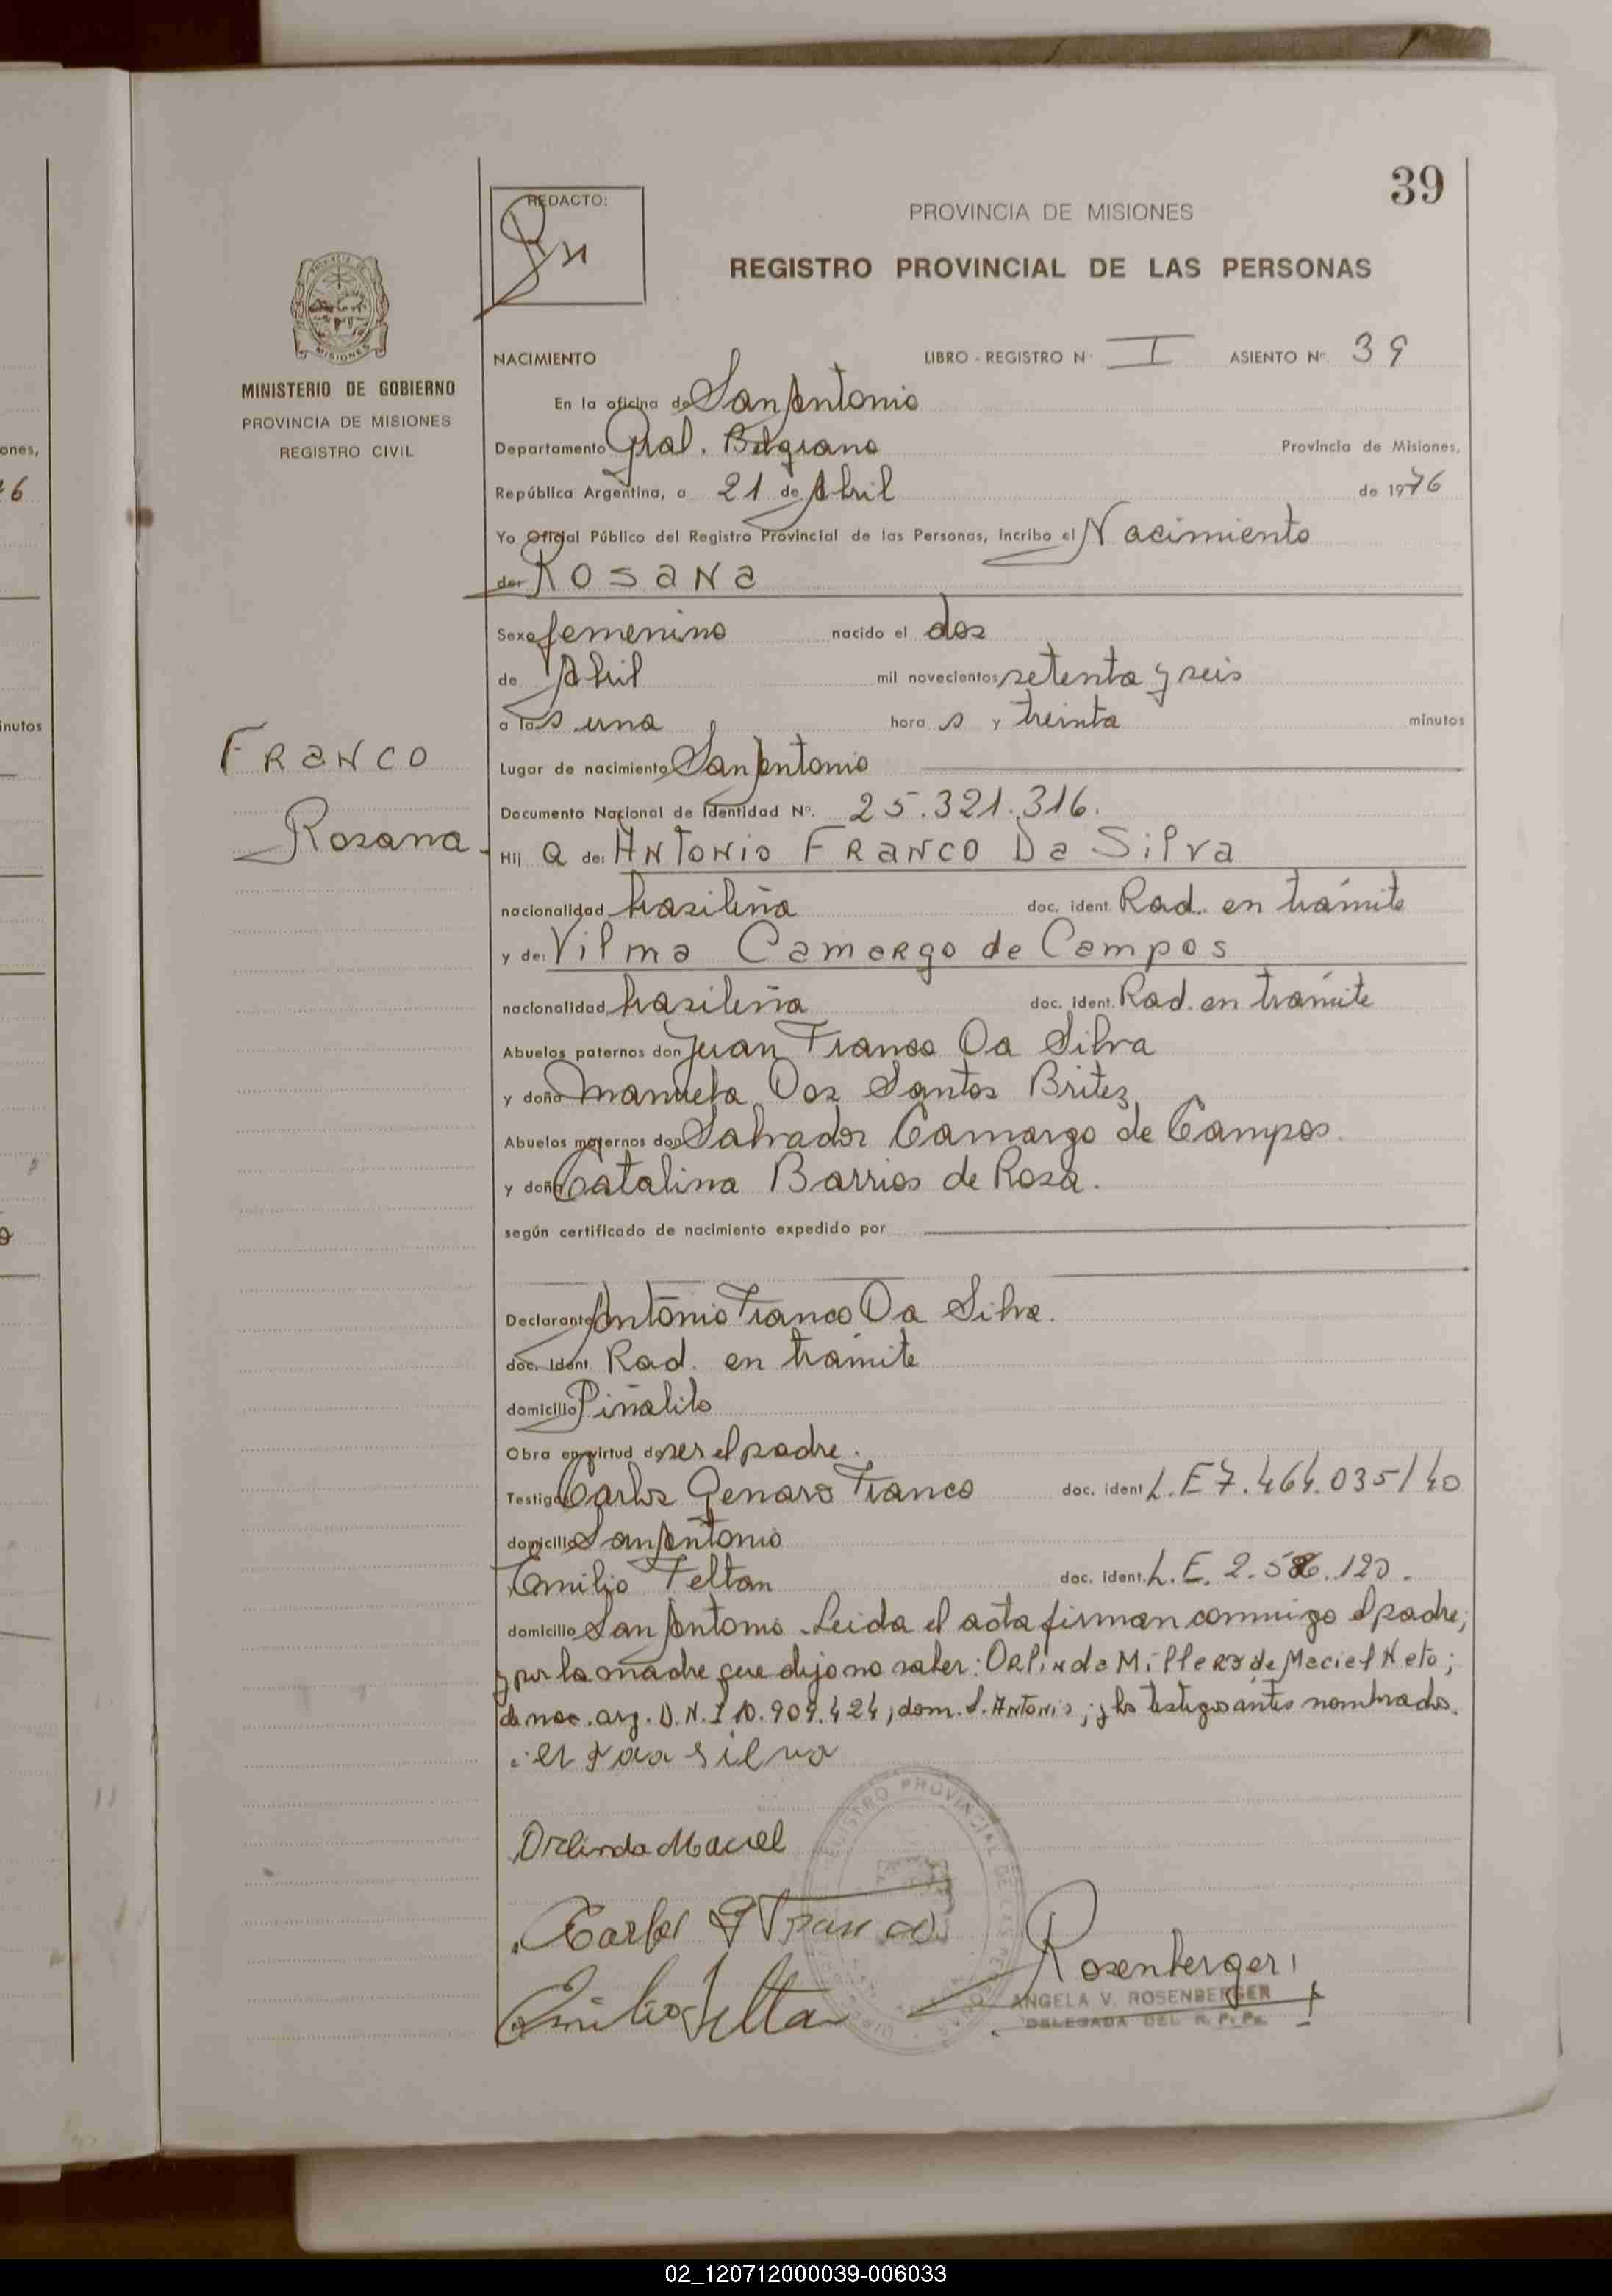 39
REDACTO:
PROVINCIA DE MISIONES
REGISTRO PROVINCIAL DE LAS PERSONAS
MISIONES
MINISTERIO DE GOBIERNO
PROVINCIA DE MISIONES
REGISTRO CIVIL
FRANCO
Rosana.
NACIMIENTO LIBRO - REGISTRO Nº I ASIENTO Nº 39
En la oficina de San Antonio
Departamento Gral. Belgrano Provincia de Misiones,
República Argentina, a 21 de Abril de 1976
Yo Oficial Público del Registro Provincial de las Personas, incribo el Nacimiento
de: ROSANA
Sexo femenino nacido el dos
de Abril mil novecientos setenta y seis
a las una hora s y treinta minutos
Lugar de nacimiento San Antonio
Documento Nacional de Identidad Nº. 25.321.316.
Hij a de: ANTONIO FRANCO Da Silva
nacionalidad brasileña doc. ident. Rad. en trámite
y de: Vilma Camargo de Campos
nacionalidad brasileña doc. ident. Rad. en tramite
Abuelos paternos don Juan Franco Da Silva
y doña Manuela Dos Santos Britez
Abuelos maternos don Salvador Camargo de Campos.
y doña Catalina Barrios de Rosa.
según certificado de nacimiento expedido por
Declarante Antonio Franco Da Silva.
doc. Ident. Rad. en trámite
domicilio Piñalito
Obra en virtud de ser el padre.
Testigos Carlos Genaro Franco doc. ident L.E 7.464.035/40
domicilio San Antonio
Emilio Teltan doc. ident. L.E. 2.586.120.
domicilio San Antonio. Leida el acta firman conmigo el padre;
y por la madre que dijo no saber: Orlinda Millero de Maciel Neto;
de nac. arg. D.N.I 10.909.424, dom. S. Antonio; y los testigos antes nombrados.
silva
Orlinda Maciel
Carlos G Franco
Emilio Teltan
REGISTRO PROVINCIAL DE LAS PERSONAS
Rosenberger
ANGELA V. ROSENBERGER
DELEGADA DEL R. P. Ps.
ones,
76
inutos
02_120712000039-006033